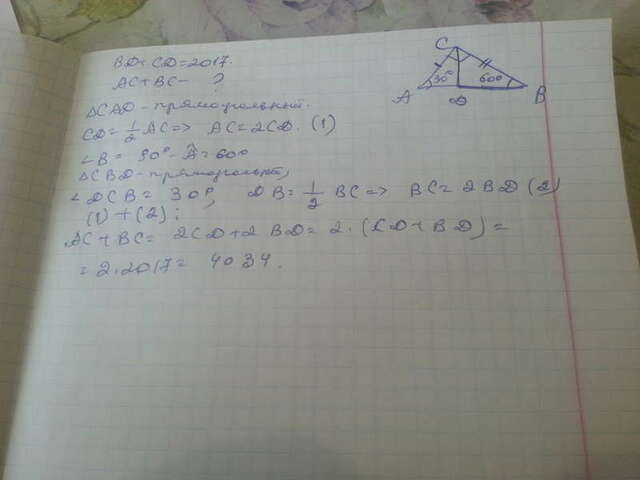 BD+CD=2017.
AC+BC- ?
△CAD-прямоугольный.
CD=1/2 AC=> AC=2CD. (1)
∠B= 90°-A=60°
△CBD-прямоугольн,
∠DCB=30°, DB=1/2 BC=> BC=2BD (2)
(1)+(2):
AC+BC= 2CD+2BD=2·(CD+BD)=
=2·2017= 4034.
C
30° 60°
A D B